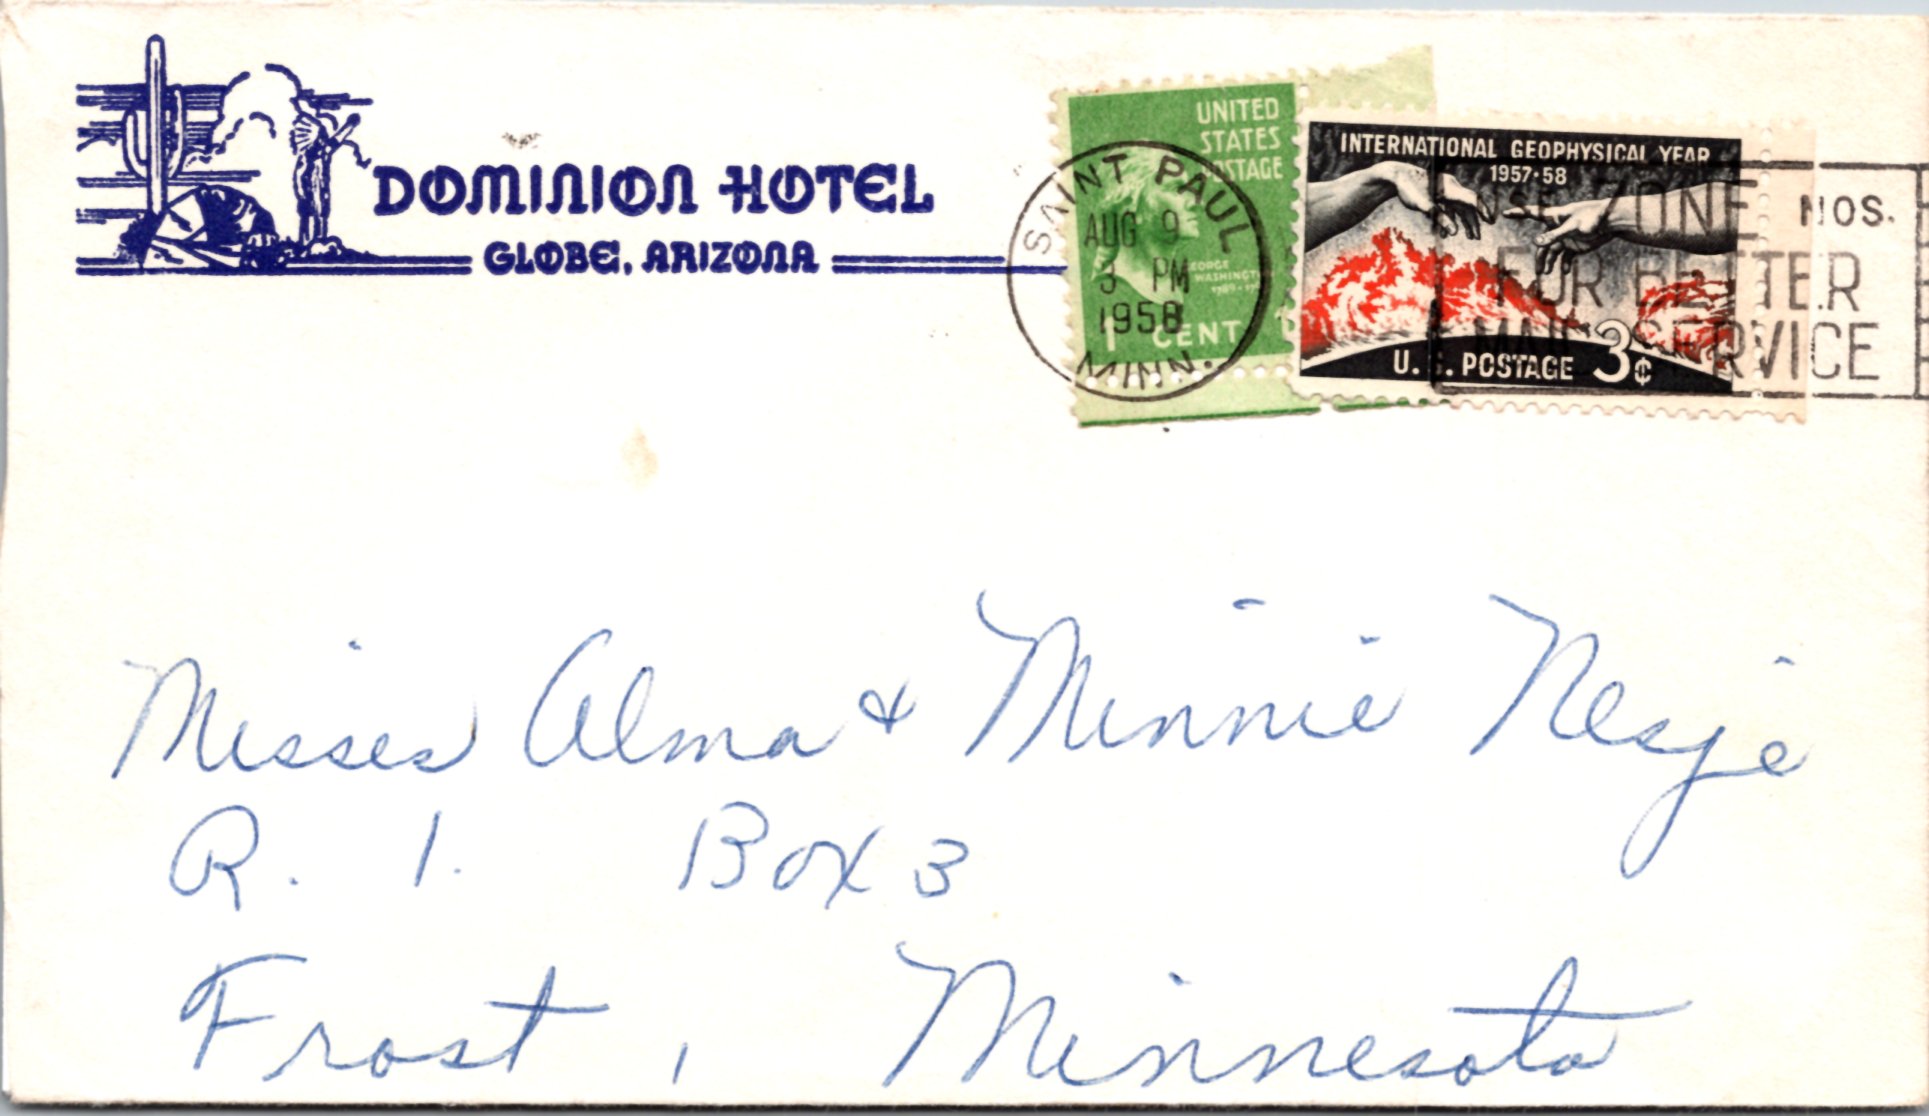 DOMINION HOTEL
GLOBE, ARIZONA
UNITED
STATES
POSTAGE
GEORGE
WASHINGTON
1 CENT
SAINT PAUL
AUG 9
3 PM
1958
MINN.
INTERNATIONAL GEOPHYSICAL YEAR
1957·58
U.S. POSTAGE 3¢
USE ZONE NOS.
FOR BETTER
MAIL SERVICE
Misses Alma & Minnie Nesje
R. 1. Box 3
Frost, Minnesota